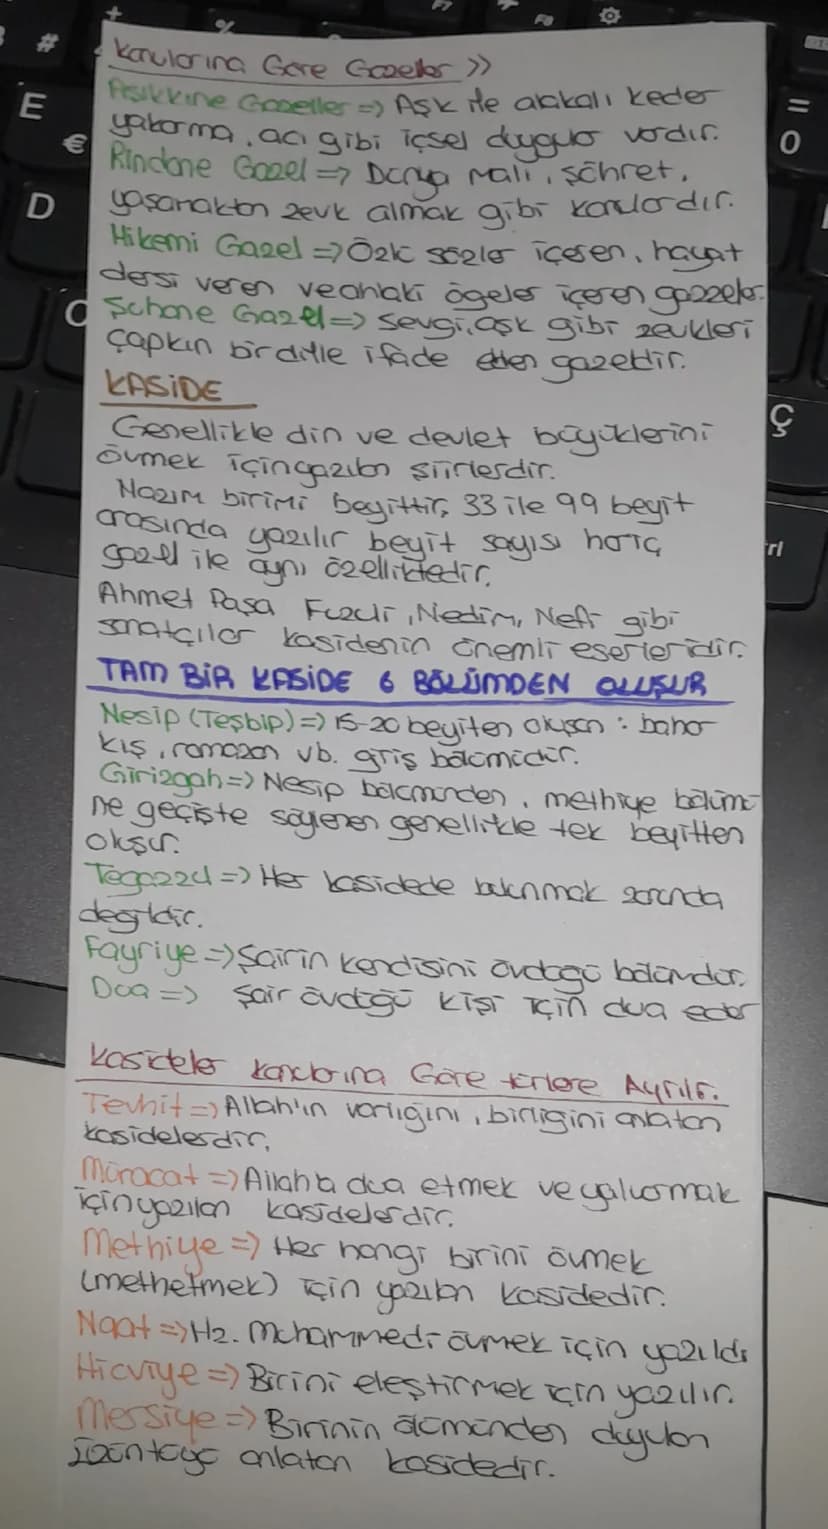 Konularına Göre Gazeller >>
Aşıkkıne Gazeller => Aşk ile alakalı keder
yakarma, acı gibi içsel duygular vardır.
Rindane Gazel => Dünya malı, şöhret,
yaşamaktan zevk almak gibi konulardır.
Hikemi Gazel => Özlü sözler içeren, hayat
dersi veren ve ahlaki ögeler içeren gazzeler.
Şuhane Gazel => sevgi, aşk gibi zevkleri
çapkın bir dille ifade eden gazeldir.
KASİDE
Genellikle din ve devlet büyüklerini
övmek için yazılan şiirlerdir.
Nazım birimi beyittir, 33 ile 99 beyit
arasında yazılır beyit sayısı hariç
gazel ile aynı özelliktedir.
Ahmet Paşa Fuzuli, Nedim, Nefi gibi
sanatçılar kasidenin önemli eserleridir.
TAM BİR KASİDE 6 BÖLÜMDEN OLUŞUR
Nesip (Teşbip) => 15-20 beyiten oluşan : bahar
kış, ramazan vb. giriş bölümüdür.
Girizgah => Nesip bölümünden, methiye bölümü
ne geçişte söylenen genellikle tek beyitten
oluşur.
Tegazzül => Her kasidede bulunmak zorunda
değildir.
Fayriye => Şairin kendisini övdüğü bölümdür.
Dua => şair övdüğü kişi için dua eder
Kasideler Konularına Göre türlere Ayrılır.
Tevhit => Allah'ın varlığını, birliğini anlatan
kasidelerdir.
Münacat => Allah'a dua etmek ve yalvarmak
için yazılan kasidelerdir.
Methiye => Her hangi birini övmek
(methetmek) için yazılan kasidedir.
Naat => Hz. Muhammedi övmek için yazıldı
Hicviye => Birini eleştirmek için yazılır.
Mersiye => Birinin ölümünden duyulan
üzüntüyü anlatan kasidedir.
E
€
D
#
%
F7
F8
=
0
Ç
rl